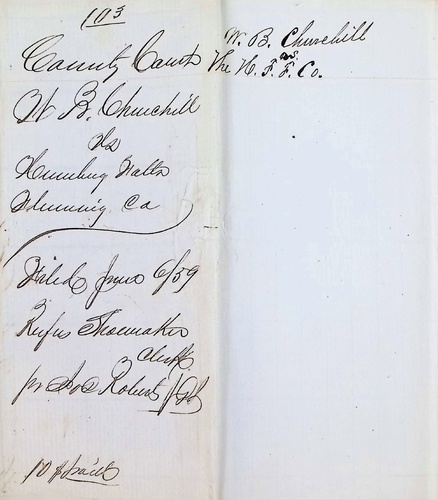 103
County Court
W B. Churchill
vs
Humbug Flats
Flumming Co
Filed June 6/59
Rufus Shoemaker
Clerk
pr Roberts
10 pd
W. B. Churchill
vs.
The H. F. F. Co.